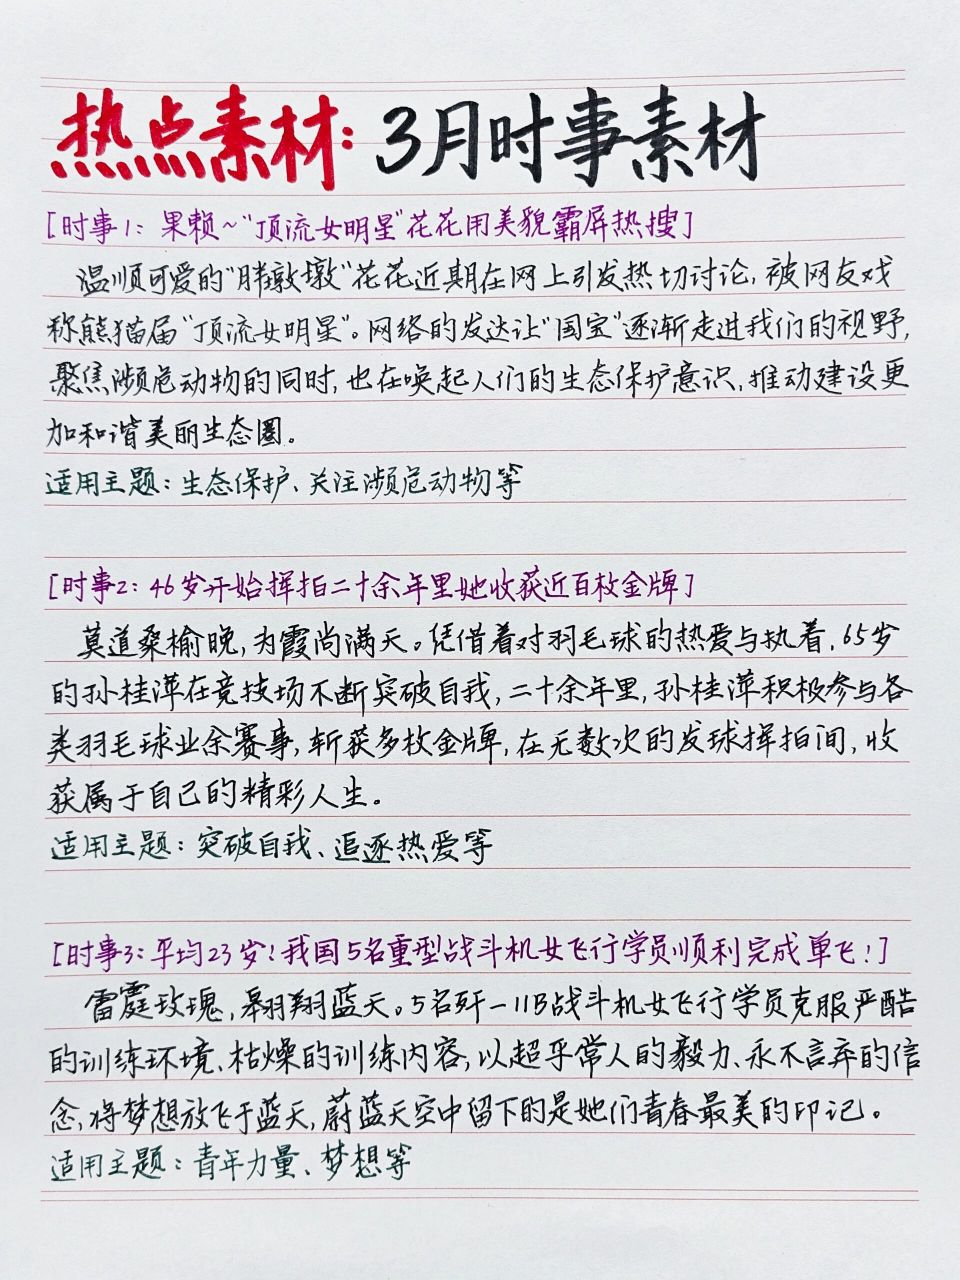 热点素材：3月时事素材
[时事1：果赖~“顶流女明星”花花用美貌霸屏热搜]
温顺可爱的“胖墩墩”花花近期在网上引发热切讨论，被网友戏
称熊猫届“顶流女明星”。网络的发达让“国宝”逐渐走进我们的视野，
聚焦濒危动物的同时，也在唤起人们的生态保护意识，推动建设更
加和谐美丽生态圈。
适用主题：生态保护、关注濒危动物等
[时事2：46岁开始挥拍二十余年里她收获近百枚金牌]
莫道桑榆晚，为霞尚满天。凭借着对羽毛球的热爱与执着，65岁
的孙桂萍在竞技场不断突破自我，二十余年里，孙桂萍积极参与各
类羽毛球业余赛事，斩获多枚金牌，在无数次的发球挥拍间，收
获属于自己的精彩人生。
适用主题：突破自我、追逐热爱等
[时事3：平均23岁！我国5名重型战斗机女飞行学员顺利完成单飞！]
雷霆玫瑰，翱翔蓝天。5名歼—11B战斗机女飞行学员克服严酷
的训练环境、枯燥的训练内容，以超乎常人的毅力、永不言弃的信
念，将梦想放飞于蓝天，蔚蓝天空中留下的是她们青春最美的印记。
适用主题：青年力量、梦想等